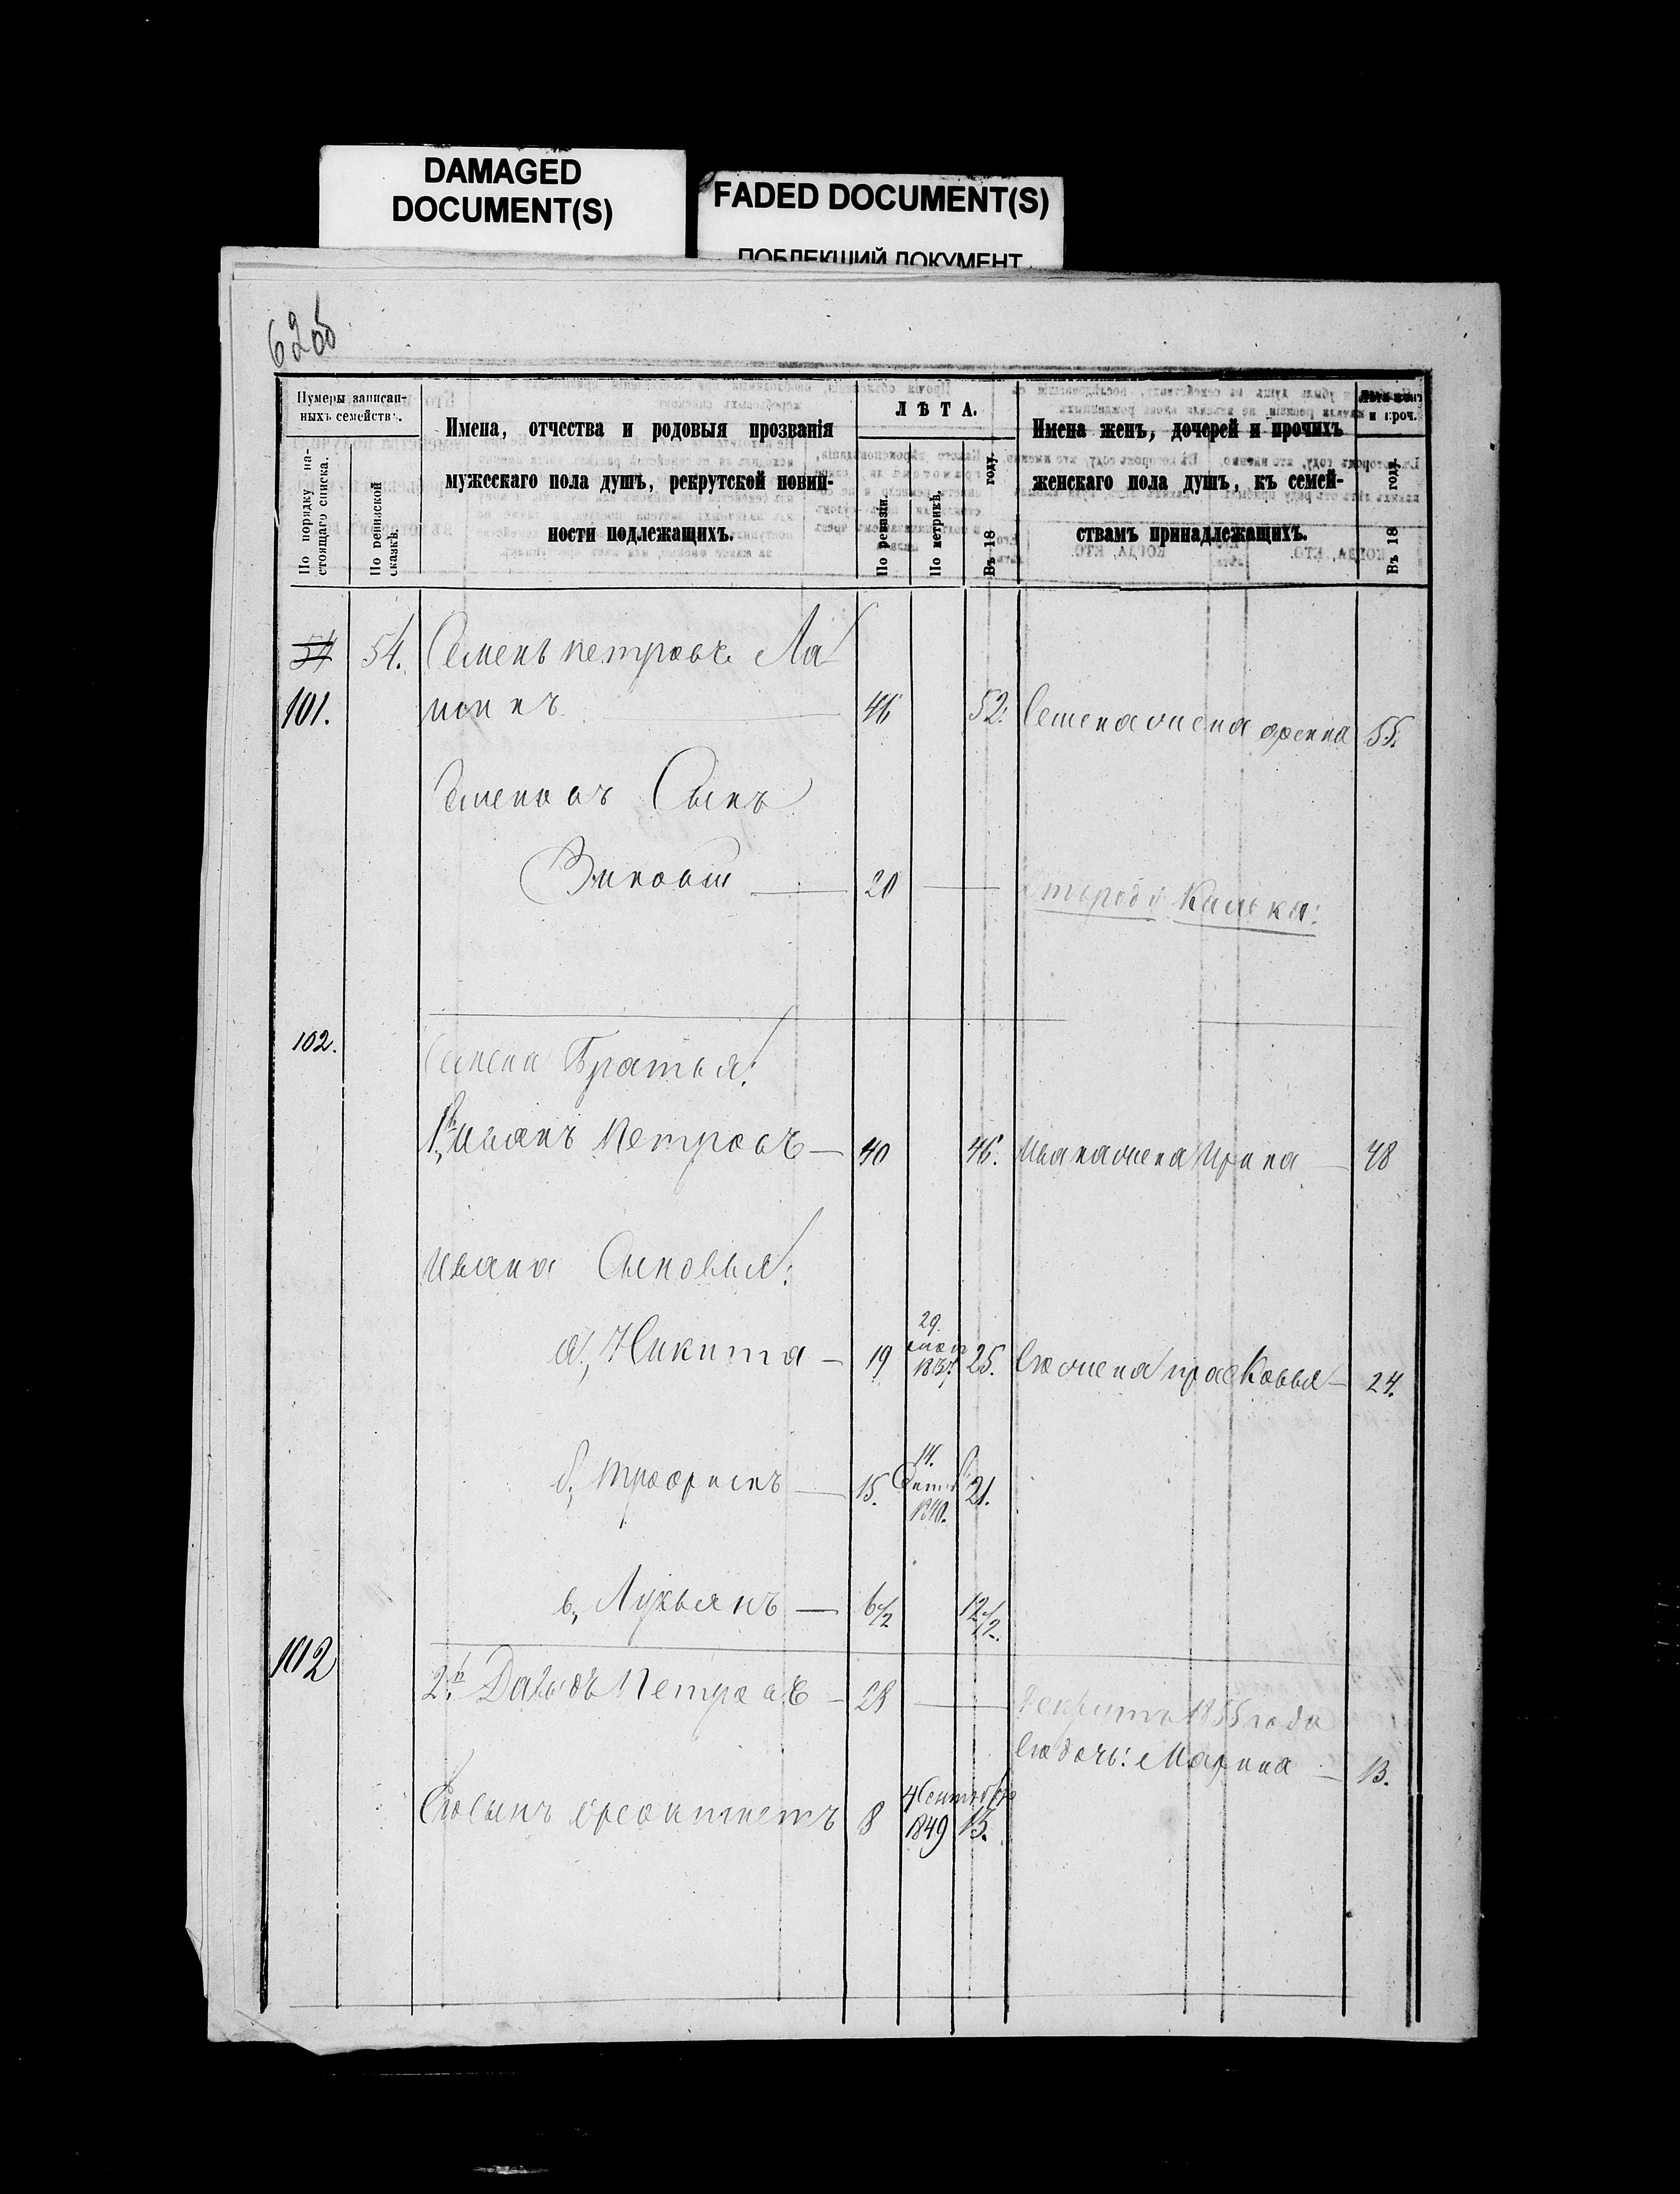 DAMAGED
DOCUMENT(S)
FADED DOCUMENT(S)
ПОБЛЕКШИЙ ДОКУМЕНТ
62об
Нумеры записан-
ныхъ семействъ.
По порядку на-
стоящаго списка.
По ревизской
сказкѣ.
Имена, отчества и родовыя прозванія
мужескаго пола душъ, рекрутской повин-
ности подлежащихъ.
ЛѢТА.
По ревизіи.
По метрикѣ.
Въ 18 году.
Имена женъ, дочерей и прочихъ
женскаго пола душъ, къ семей-
ствамъ принадлежащихъ.
Лѣта женъ
и проч.
Въ 18 году.
54 54. Семенъ Петровъ Ла
101. 46 52. Семена жена 55.
Семеновъ Сынъ
20
102. Семена Братья:
1й Иванъ Петровъ — 40 46. Ивана жена Ирина — 48
Ивана Сыновья:
а, Никита — 19 29. 1837. 25. Его жена Прасковья — 24.
б, Трофимъ — 15. 14. 1840. 21.
в, Лукьянъ — 6 1/2 12 1/2.
102 2й Давыдъ Петровъ — 28 — Рекрутъ 1855 года
Его дочь: Марина — 13.
Его сынъ Феоктистъ 8 4 Сентября 1849 13.